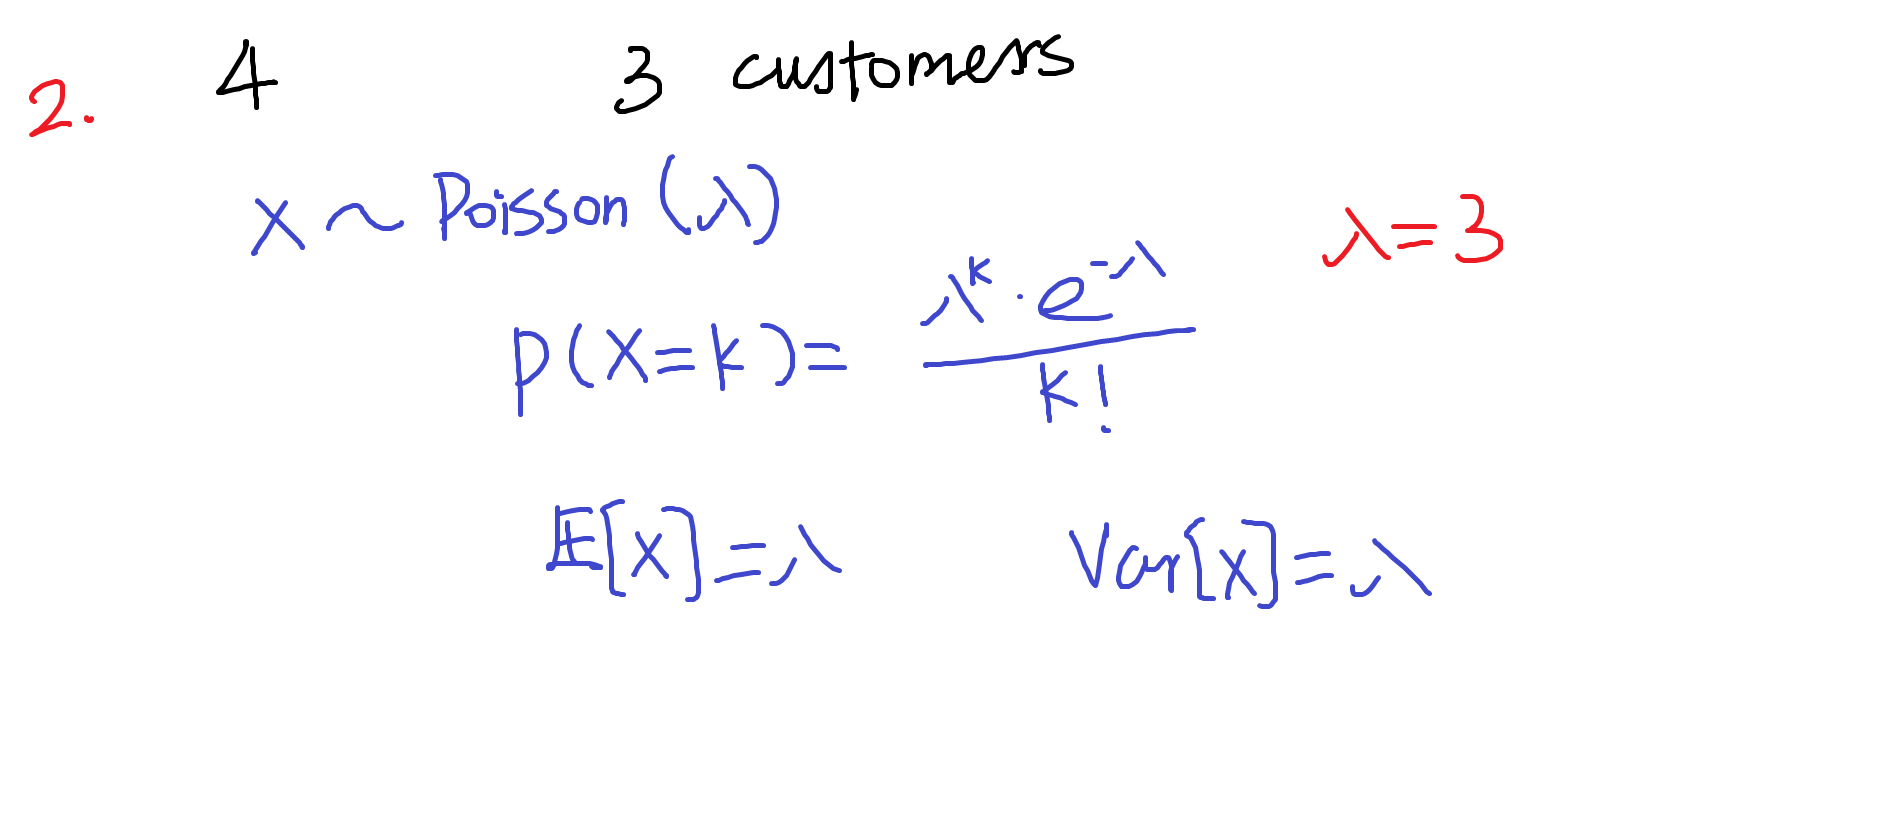 2. 4 3 customers
X ~ Poisson(λ) λ=3
P(X=k)= λ^k · e^-λ / k!
E[X]=λ Var[X]=λ